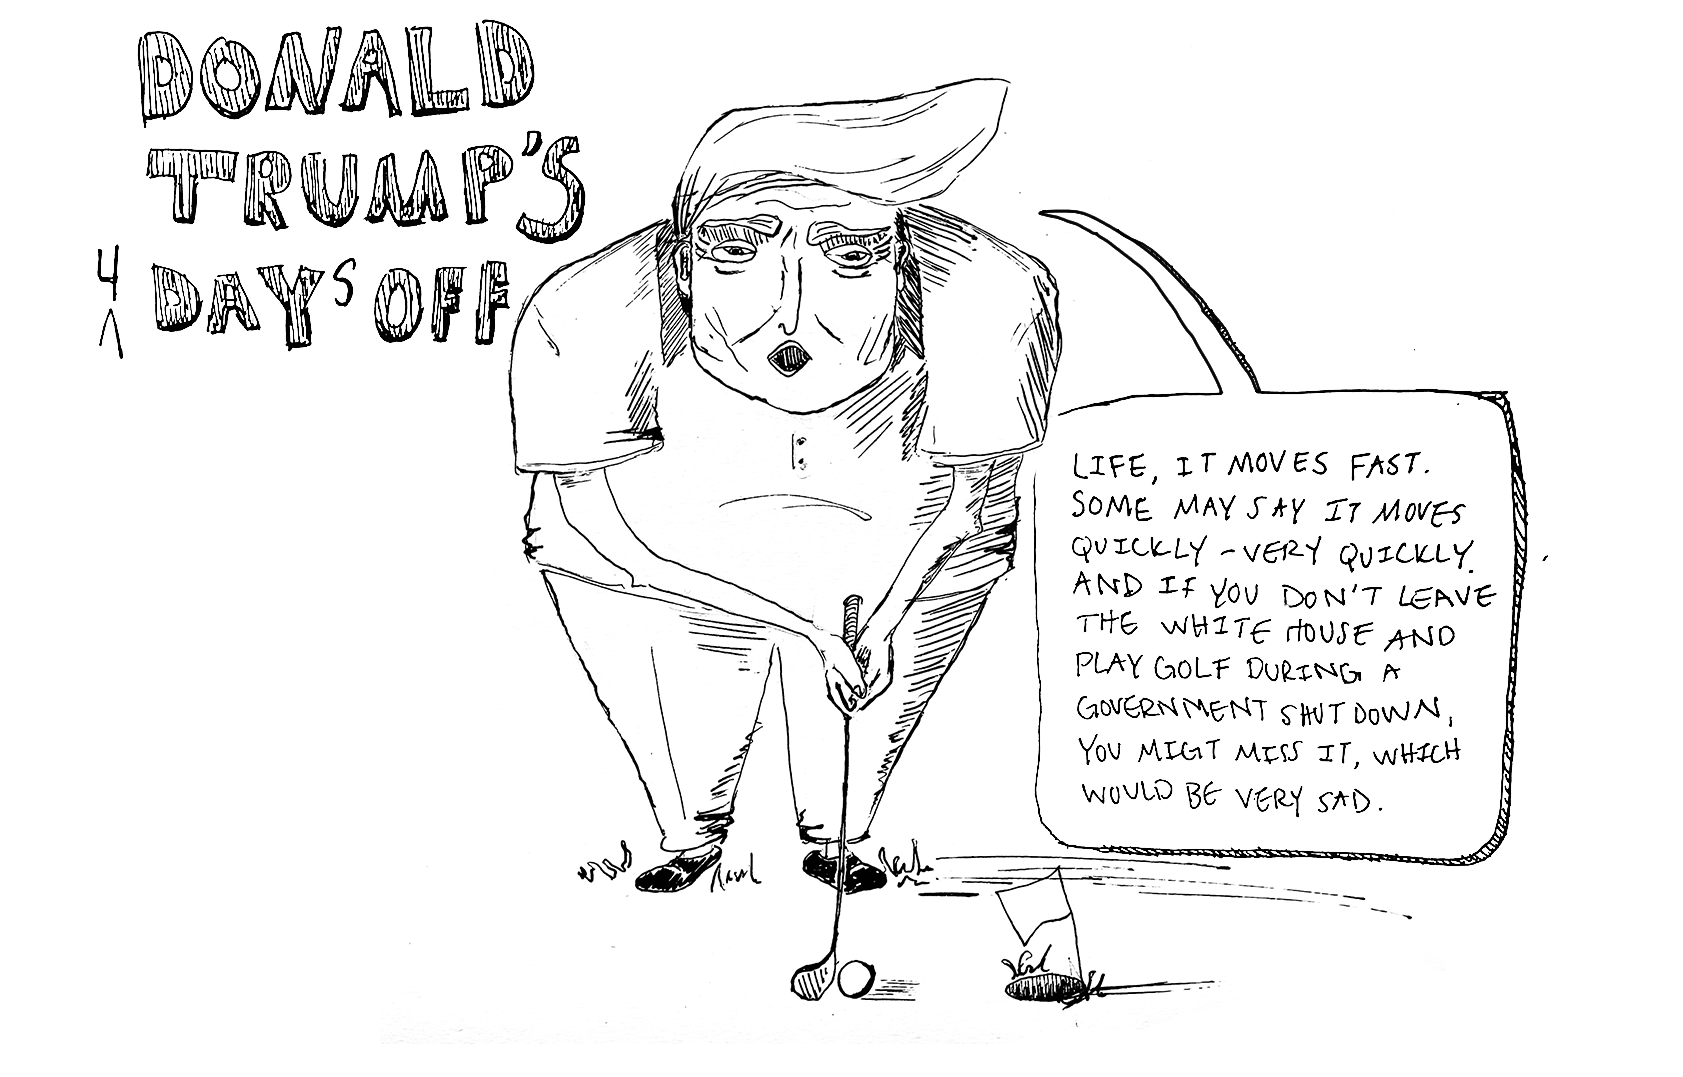 DONALD
TRUMP'S
4 DAYS OFF
LIFE, IT MOVES FAST.
SOME MAY SAY IT MOVES
QUICKLY - VERY QUICKLY.
AND IF YOU DON'T LEAVE
THE WHITE HOUSE AND
PLAY GOLF DURING A
GOVERNMENT SHUTDOWN,
YOU MIGT MISS IT, WHICH
WOULD BE VERY SAD.